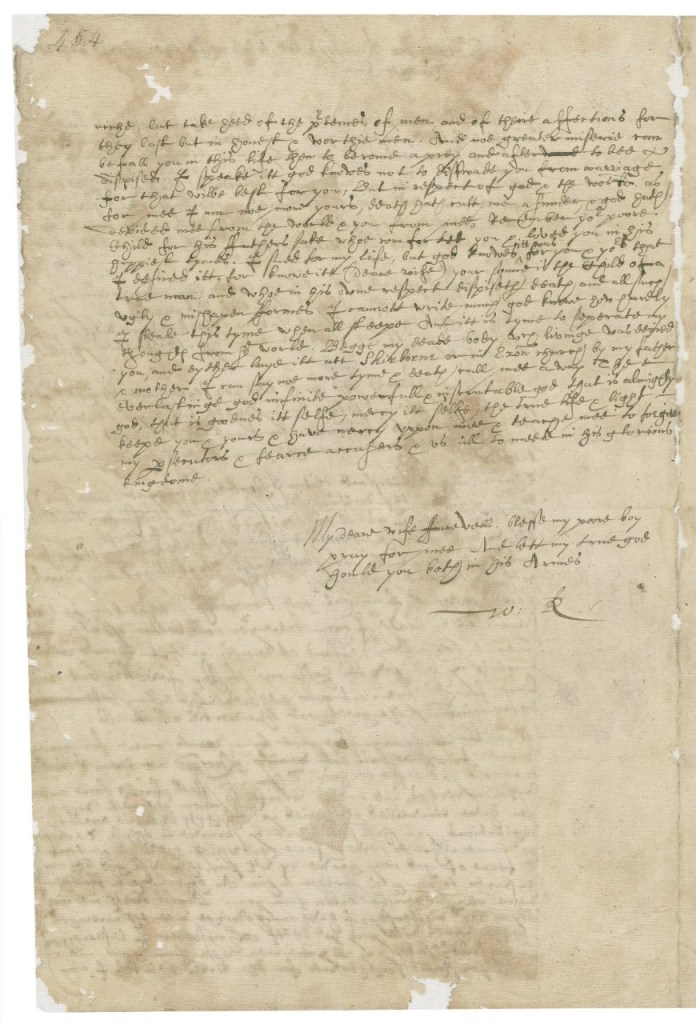 454
riche. but take heed of the p̱tences of men and of there affections for
they last but in honest & worthie men. And noe greater miserie can
befall you in this life then to become a prey and after to bee
dispised. I speake itt god knowes not to disswade you from marriage
for that wilbe best for you, both in respect of god & the world. as
for mee I am noe more yours, death hath cutt me a sunder & god hath
devided mee from the world & you from mee. Remember yor poore
Child for his fathers sake whoe loved you in his
happiest tymes. I sued for my life, but god knowes itt was for you & yors that
I desired itt. for knowe itt (deare wife) your sonne is the Child of a
true man and whoe in his owne respect dispiseth death and all his
ugly & mishapen formes. I cannott write much god knowe how hardly
I steale this tyme when all sleepe And itt is tyme to seperate my
thoughts from ye world. Begge my deade body wch livinge was denyed
you, and eyther burye itt att Shirborne or in Exon church by my father
& mother. I can say noe more tyme & death call mee away. The
Everlastinge god infinite powerfull & inscrutable god that is almighty
god, that is goodnes itt selfe, mercy itt selfe, the true life & light
keepe you & yours & have mercy uppon mee & teache mee to forgive
my p̱secutors & fearce accusers & us all to meete in his glorious
kingdome.
My deare wife farewell. blesse my poore boy
pray for mee. And lett my true god
hould you both in his Armes
W: R